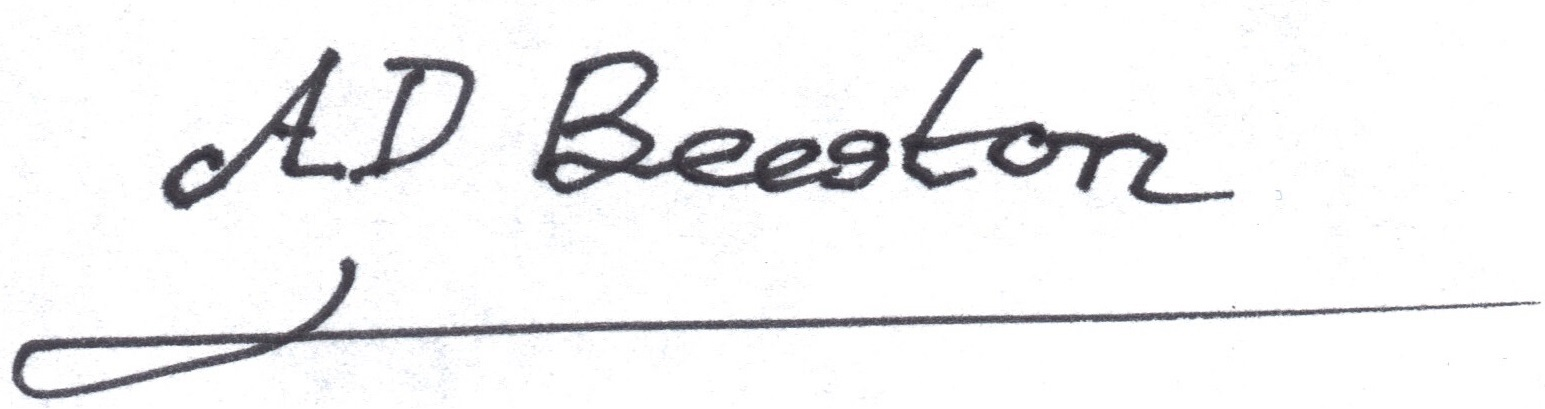 AD Beeston